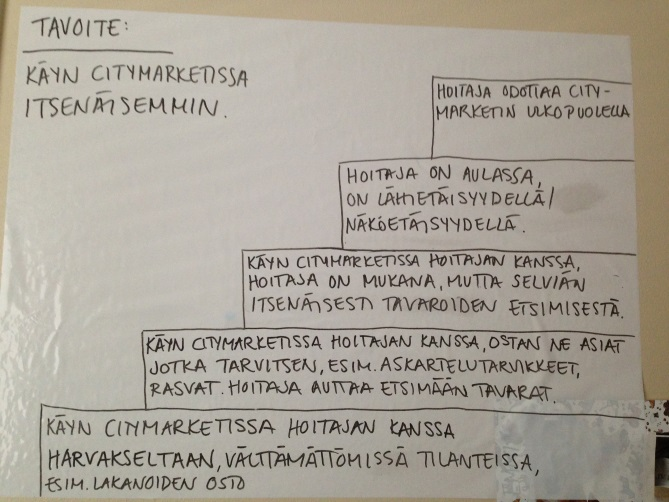 TAVOITE:
KÄYN CITYMARKETISSA
ITSENÄISEMMIN.
HOITAJA ODOTTAA CITY-
MARKETIN ULKOPUOLELLA
HOITAJA ON AULASSA,
ON LÄHIETÄISYYDELLÄ/
NÄKÖETÄISYYDELLÄ.
KÄYN CITYMARKETISSA HOITAJAN KANSSA,
HOITAJA ON MUKANA, MUTTA SELVIÄN
ITSENÄISESTI TAVAROIDEN ETSIMISESTÄ.
KÄYN CITYMARKETISSA HOITAJAN KANSSA, OSTAN NE ASIAT
JOTKA TARVITSEN, ESIM. ASKARTELUTARVIKKEET,
RASVAT. HOITAJA AUTTAA ETSIMÄÄN TAVARAT.
KÄYN CITYMARKETISSA HOITAJAN KANSSA
HARVAKSELTAAN, VÄLTTÄMÄTTÖMISSÄ TILANTEISSA,
ESIM. LAKANOIDEN OSTO